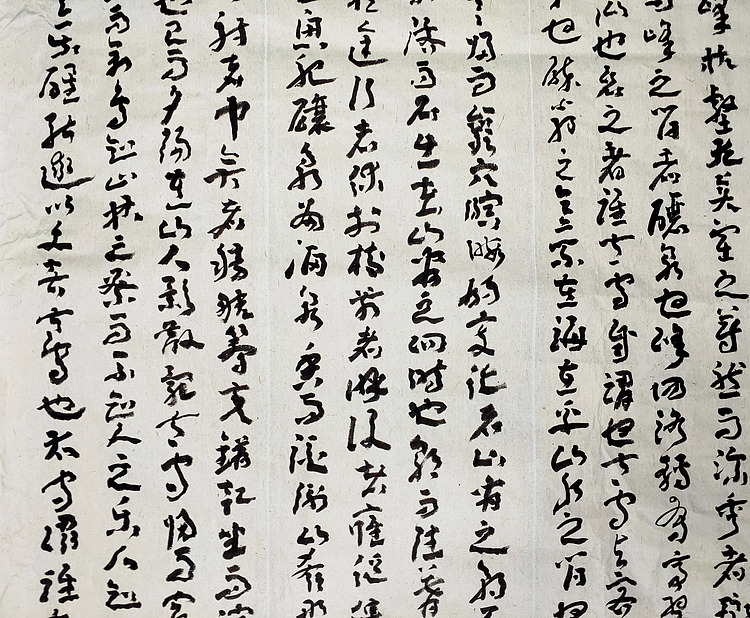 峰林壑尤美望之蔚然而深秀者瑯
峰之間者釀泉也峰回路轉有亭翼
仙也名之者誰太守自謂也太守與客
也醉翁之意不在酒在乎山水之間也
歸而巖穴暝晦明變化者山間之朝
落而石出者山間之四時也朝而往暮
於途行者休於樹前者呼後者應
魚肥釀泉為酒泉香而酒洌山肴野
射者中弈者勝觥籌交錯起坐而諠
也已而夕陽在山人影散亂太守歸而賓
而禽鳥知山林之樂而不知人之樂人知
樂醒能述以文者太守也太守謂誰